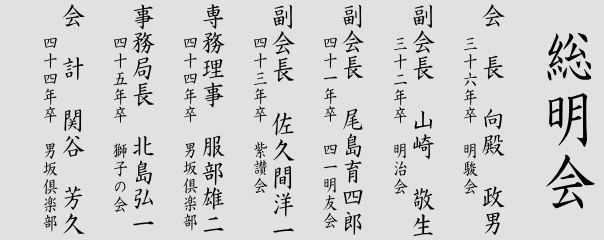 総明会
会長 向殿 政男
三十六年卒 明駿会
副会長 山崎 敬生
三十二年卒 明治会
副会長 尾島育四郎
四十一年卒 四一明友会
副会長 佐久間洋一
四十三年卒 紫讃会
専務理事 服部雄二
四十四年卒 男坂倶楽部
事務局長 北島弘一
四十五年卒 獅子の会
会計 関谷 芳久
四十四年卒 男坂倶楽部